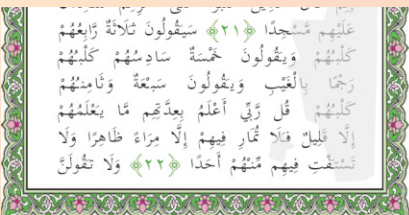 عَلَيْهِم مَّسْجِدًا ﴿٢١﴾ سَيَقُولُونَ ثَلَاثَةٌ رَّابِعُهُمْ
كَلْبُهُمْ وَيَقُولُونَ خَمْسَةٌ سَادِسُهُمْ كَلْبُهُمْ
رَجْمًا بِالْغَيْبِ وَيَقُولُونَ سَبْعَةٌ وَثَامِنُهُمْ
كَلْبُهُمْ قُل رَّبِّي أَعْلَمُ بِعِدَّتِهِم مَّا يَعْلَمُهُمْ
إِلَّا قَلِيلٌ فَلَا تُمَارِ فِيهِمْ إِلَّا مِرَاءً ظَاهِرًا وَلَا
تَسْتَفْتِ فِيهِم مِّنْهُمْ أَحَدًا ﴿٢٢﴾ وَلَا تَقُولَنَّ